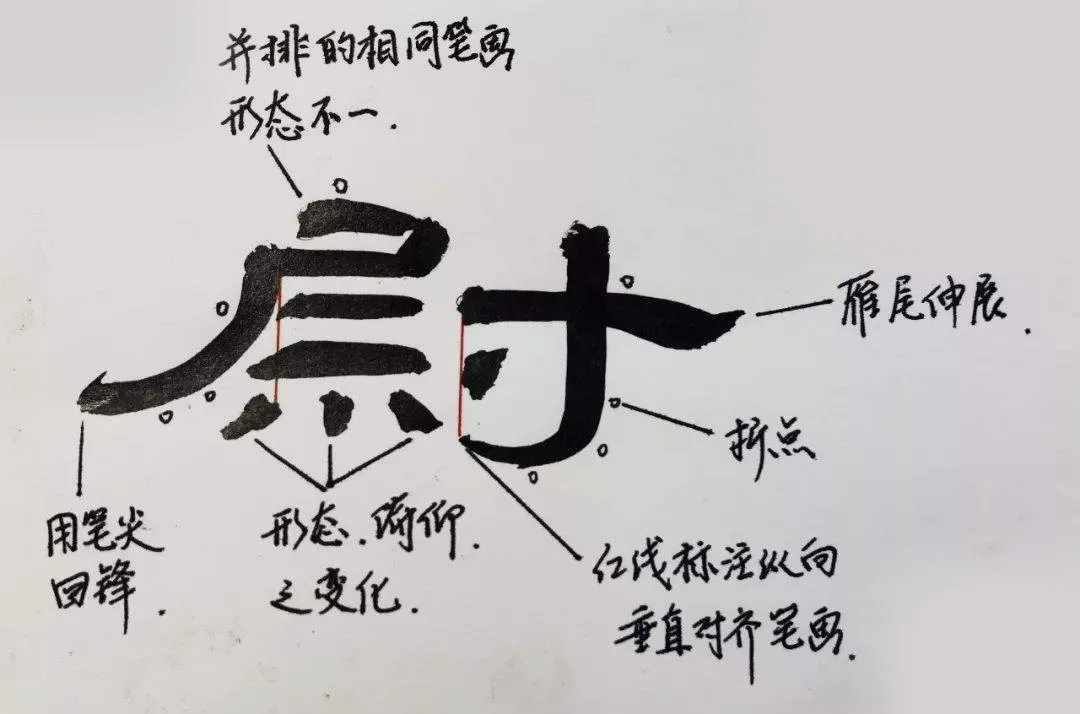 并排的相同笔画
形态不一.
尉
雁尾伸展.
折点
用笔尖
回锋.
形态.俯仰.
之变化.
红线标注纵向
垂直对齐笔画.